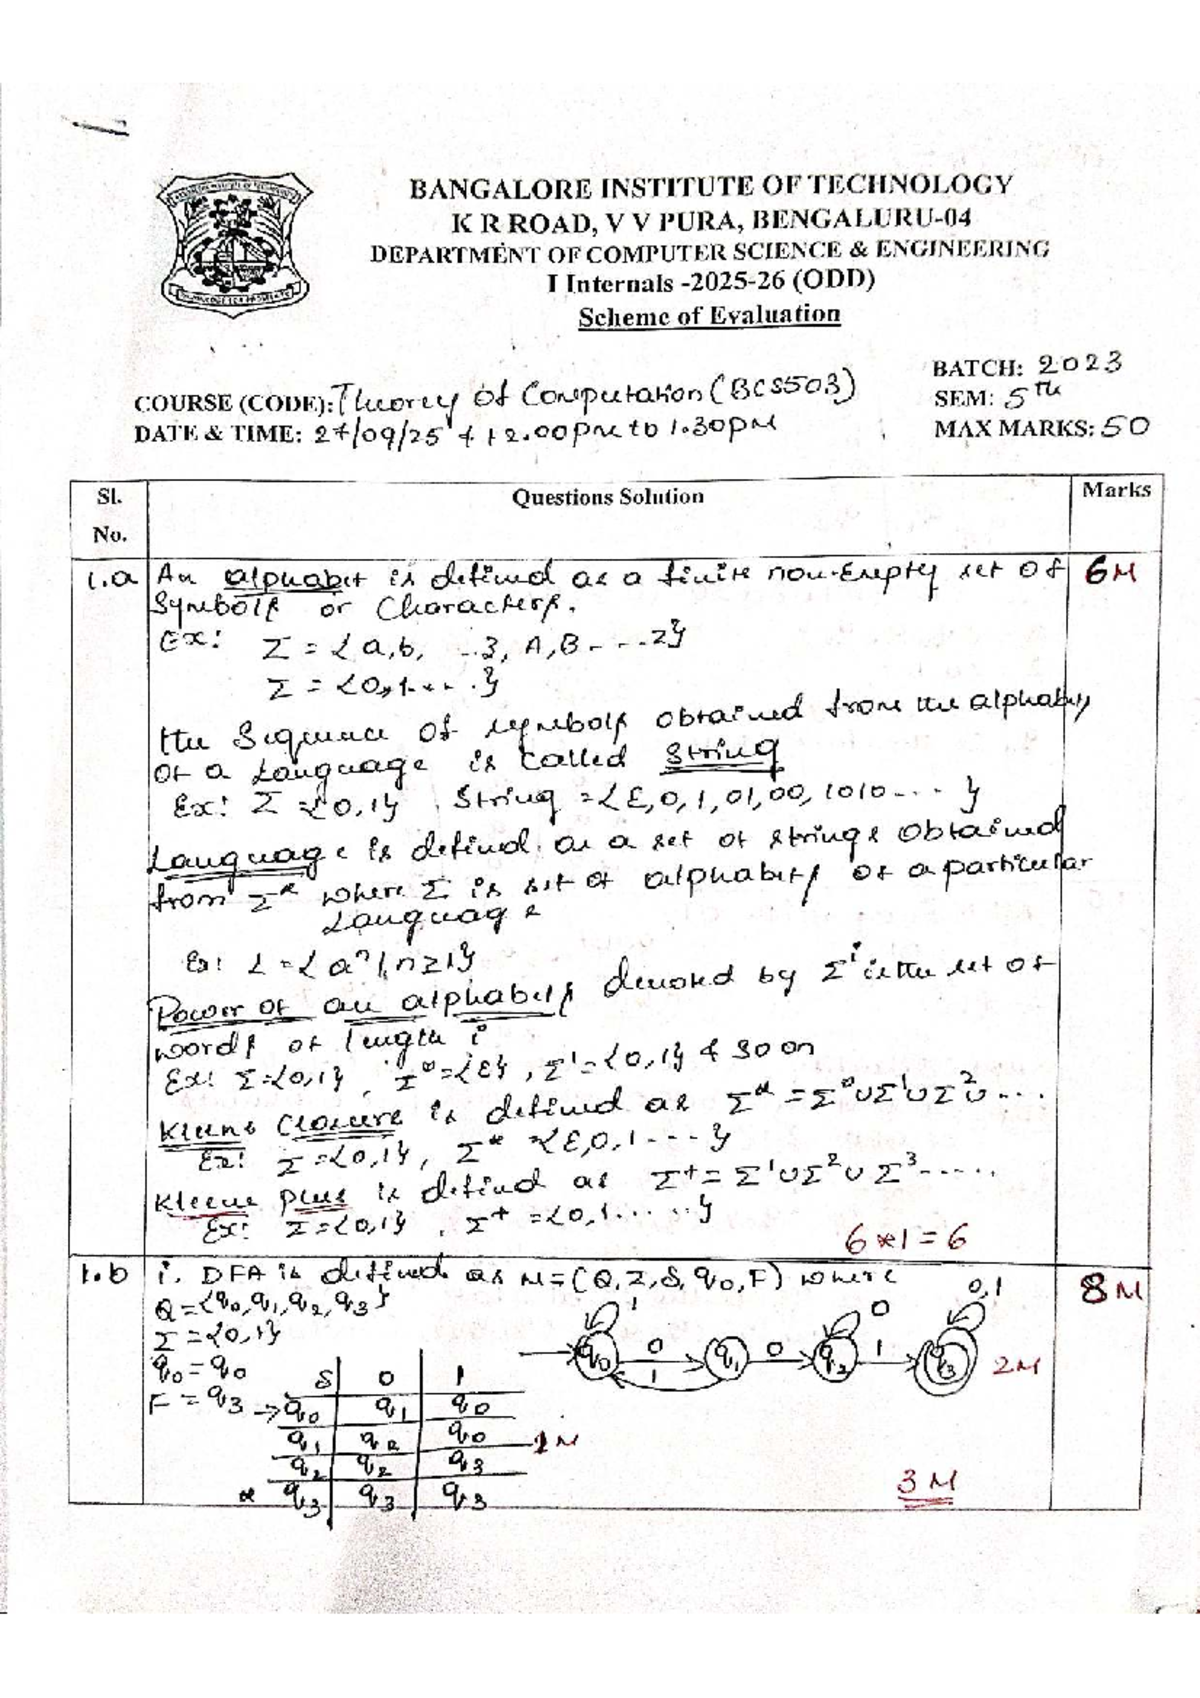 BANGALORE INSTITUTE OF TECHNOLOGY
K R ROAD, V V PURA, BENGALURU-04
DEPARTMENT OF COMPUTER SCIENCE & ENGINEERING
I Internals -2025-26 (ODD)
Scheme of Evaluation
BATCH: 2023
COURSE (CODE): Theory of Computation (BCS503)
SEM: 5th
DATE & TIME: 27/09/25 & 12.00PM to 1.30PM
MAX MARKS: 50
Sl. No.
Questions Solution
Marks
1.a An alphabet is defined as a finite non-Empty set of 6M
Symbols or Characters.
Ex: Σ = {a,b, ...z, A,B- ...Z}
Σ = {0,1....}
the Sequence of symbols obtained from the alphabets
of a Language is called String
Ex: Σ = {0,1} String = {ε,0,1,01,00,1010--- }
Language is defined as a set of strings obtained
from Σ* where Σ is set of alphabets of a particular
Language
Ex: L = {aⁿ|n≥1}
Power of an alphabets denoted by Σⁱ is the set of
words of length i
Ex: Σ={0,1}, Σ⁰={ε}, Σ¹={0,1} & so on
Kleens Closure is defined as Σ* = Σ⁰∪Σ¹∪Σ²∪...
Ex: Σ={0,1}, Σ* = {ε,0,1---}
Kleene plus is defined as Σ+ = Σ¹∪Σ²∪Σ³.....
Ex: Σ={0,1}, Σ+ = {0,1.....}
6*1=6
1.b i. DFA is defined as M=(Q,Σ,δ,q0,F) where 8M
Q={q0,q1,q2,q3}
Σ={0,1}
q0=q0
F=q3
1 0 0,1
q0 0 q1 0 q2 1 q3 2M
1
δ 0 1
→q0 q1 q0
q1 q2 q0 1M
q2 q2 q3
* q3 q3 q3
3M